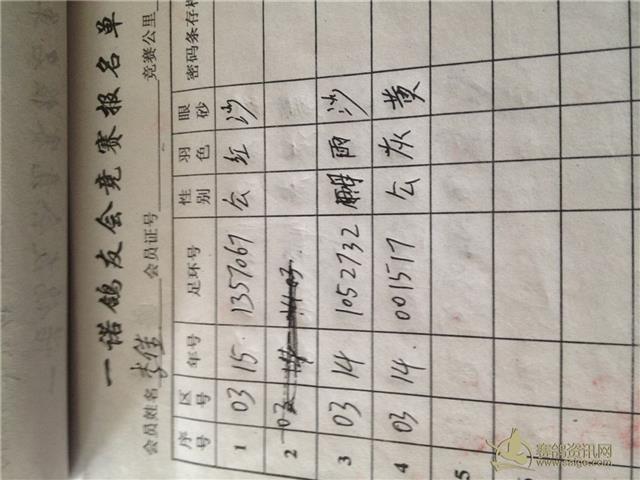 一诺鸽友会竞赛报名单
会员姓名 李佳 会员证号 竞赛公里
序号 区号 年号 足环号 性别 羽色 眼砂 密码条存根
1 03 15 1357067 公 红 沙
2 03
3 03 14 1052732 雨 沙
4 03 14 001517 公 灰 黄
5
6
赛鸽资讯网
www.saige.com